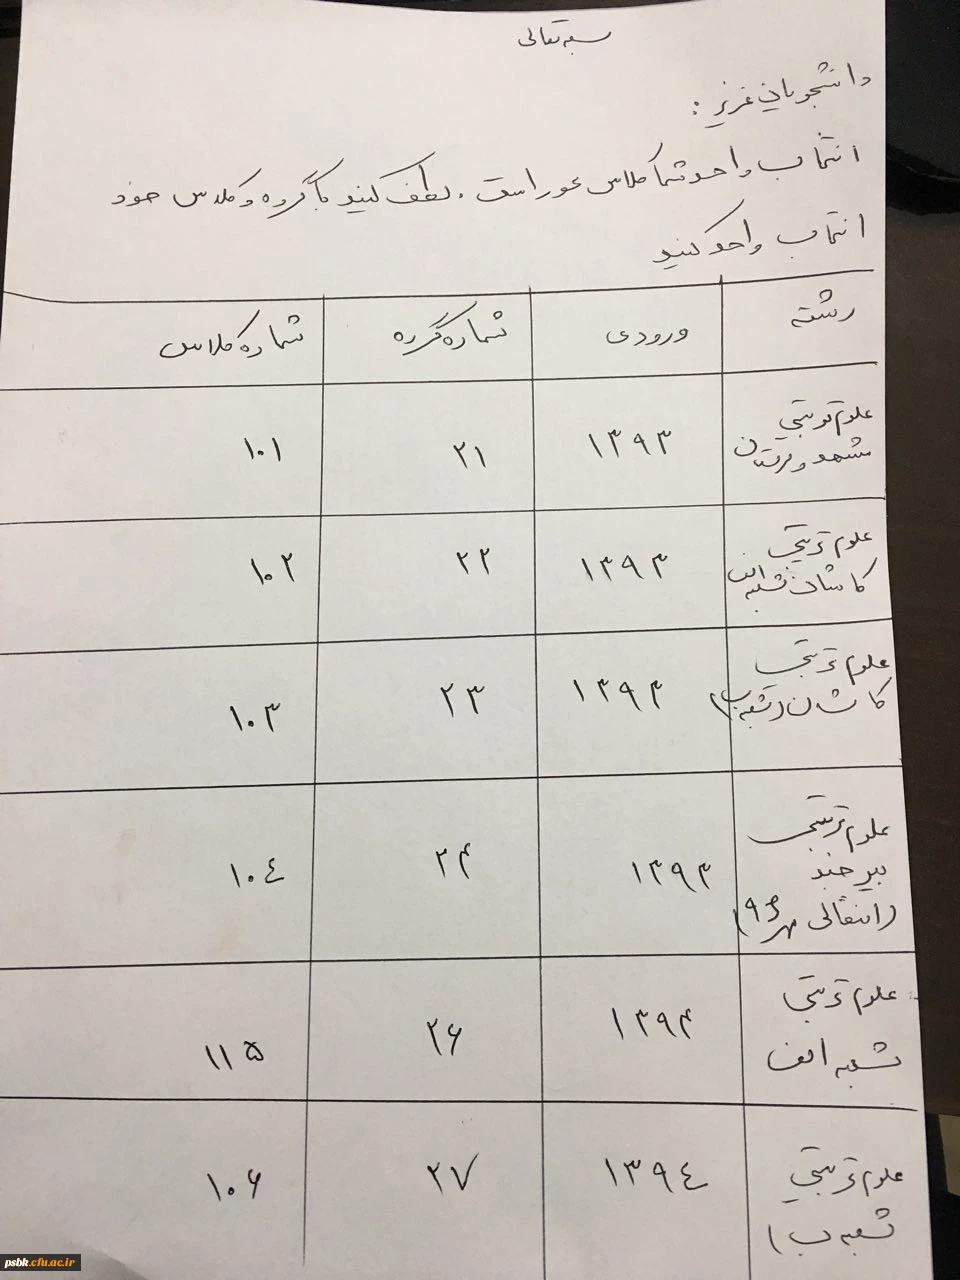 بسمه تعالی
دانشجویان عزیز :
انتخاب واحد شما کلاس محور است . لطف کنید با گروه و کلاس خود
انتخاب واحد کنید
رشته ورودی شماره گروه شماره کلاس
علوم تربیتی
مشهد و لرستان ۱۳۹۳ ۲۱ ۱۰۱
علوم تربیتی
کاشان شعبه الف ۱۳۹۳ ۲۲ ۱۰۲
علوم تربیتی
کاشان (شعبه ب) ۱۳۹۳ ۲۳ ۱۰۳
علوم تربیتی
بیرجند
(انتقالی مهر ۹۶) ۱۳۹۳ ۲۴ ۱۰۴
علوم تربیتی
شعبه الف ۱۳۹۴ ۲۶ ۱۱۵
علوم تربیتی
شعبه ب) ۱۳۹۴ ۲۷ ۱۰۶
psbk.cfu.ac.ir